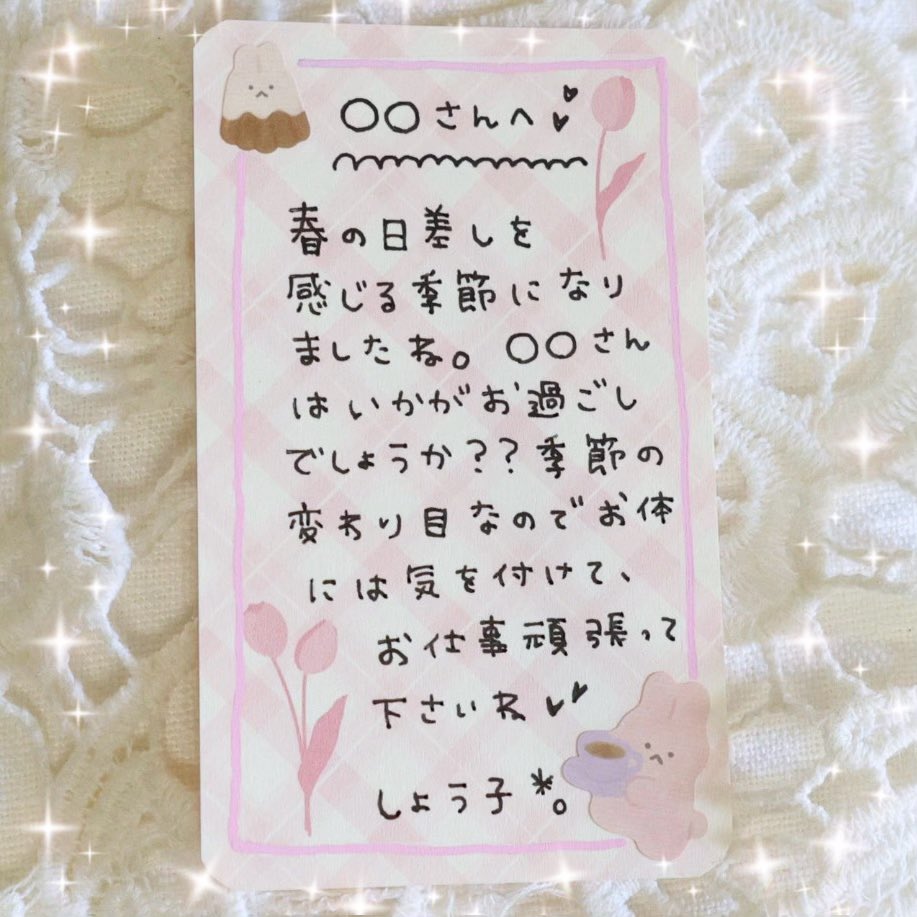 ○○さんへ♥♥
春の日差しを
感じる季節になり
ましたね。○○さん
はいかがお過ごし
でしょうか??季節の
変わり目なのでお体
には気を付けて、
お仕事頑張って
下さいね♥♥
しょう子*。